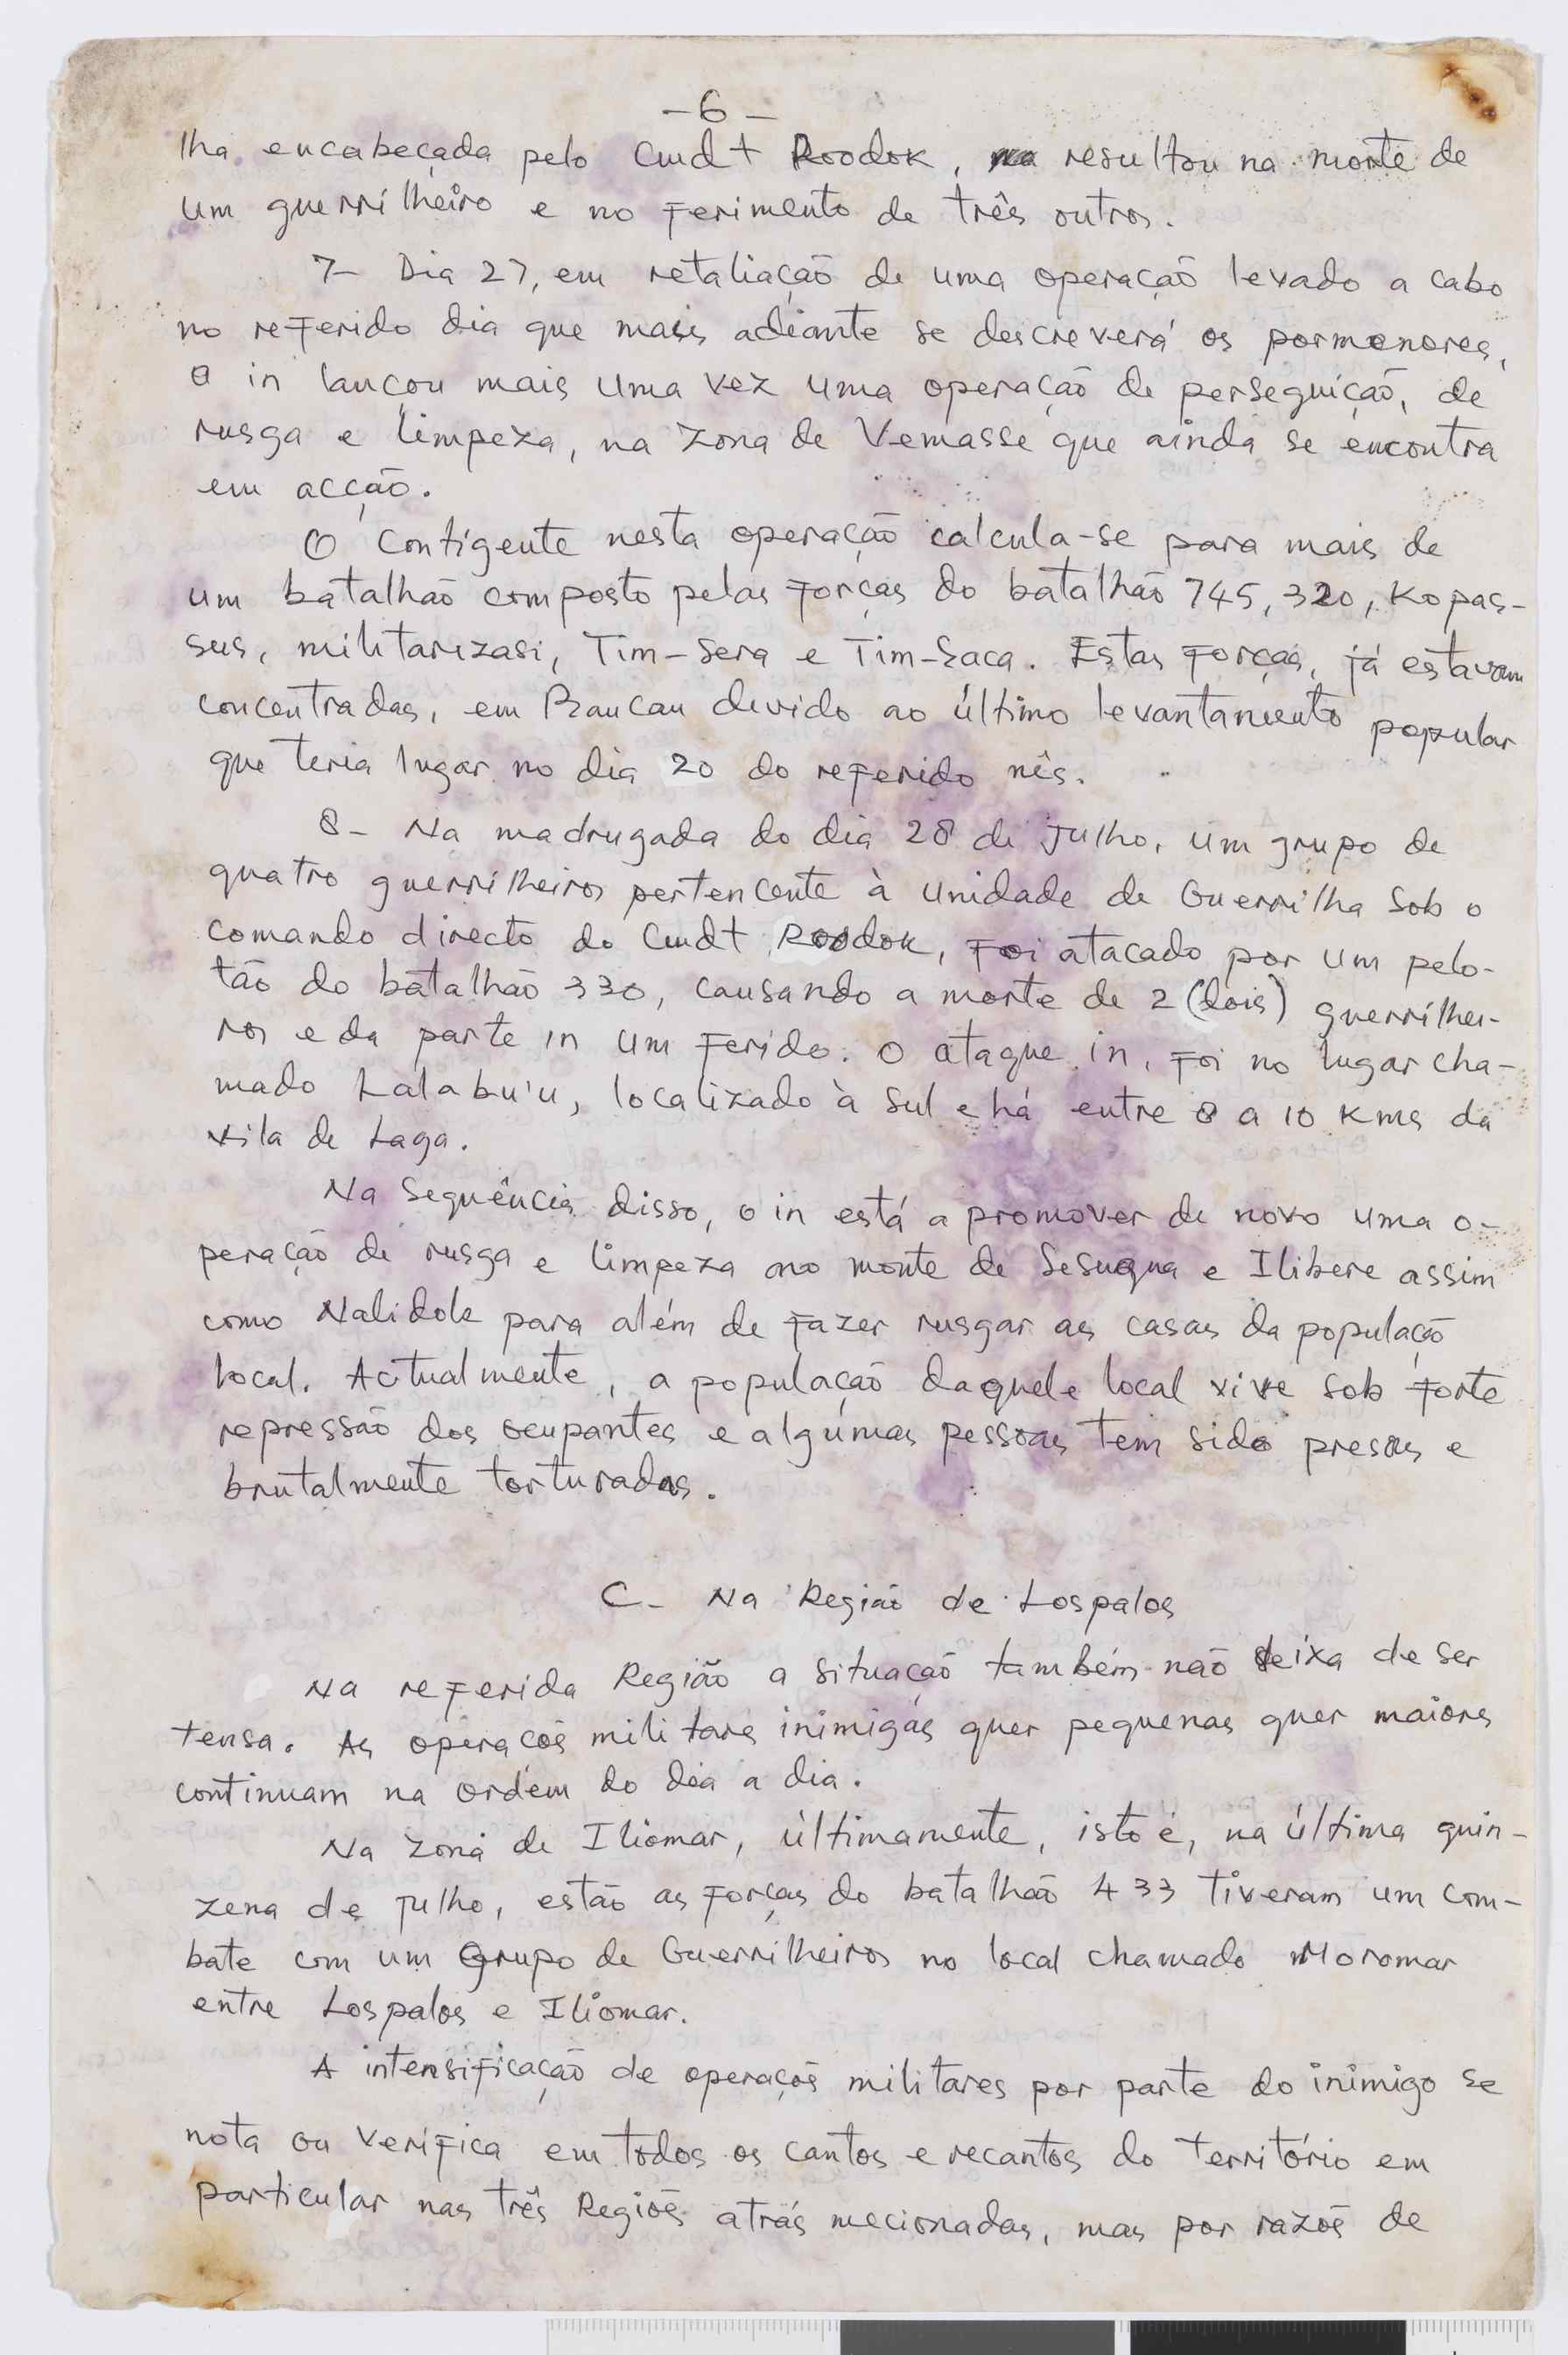 -6-
lha encabeçada pelo Cmdt Roodok, resultou na morte de
um guerrilheiro e no ferimento de três outros.
7- Dia 27, em retaliação de uma operação levado a cabo
no referido dia que mais adiante se descreverá os pormenores,
o in lançou mais uma vez uma operação de perseguição, de
rusga e limpeza, na zona de Vemasse que ainda se encontra
em acção.
O contigente nesta operação calcula-se para mais de
um batalhão composto pelas forças do batalhão 745, 320, Kopas-
sus, militarizasi, Tim-Sera e Tim-Saca. Estas forças, já estavam
concentradas, em Baucau devido ao último levantamento popular
que teria lugar no dia 20 do referido mês.
8- Na madrugada do dia 28 de Julho, um grupo de
quatro guerrilheiros pertencente à unidade de Guerrilha sob o
comando directo do Cmdt Roodok, foi atacado por um pelo-
tão do batalhão 330, causando a morte de 2 (dois) guerrilhei-
ros e da parte in um ferido. O ataque in, foi no lugar cha-
mado Lalabu'u, localizado à sul e há entre 8 a 10 Kms da
vila de Laga.
Na sequência disso, o in está a promover de novo uma o-
peração de rusga e limpeza no monte de Sesugua e Ilibere assim
como Nalidole para além de fazer rusgar as casas da população
local. Actualmente, a população daquele local vive sob forte
repressão dos ocupantes e algúmas pessoas tem sido presas e
brutalmente torturadas.
C- Na Região de Lospalos
Na referida Região a situação também não deixa de ser
tensa. As operaçõs militars inimigas quer pequenas quer maiores
continuam na ordem do dia a dia.
Na zona de Iliomar, últimamente, isto é, na última quin-
zena de Julho, estão as forças do batalhão 433 tiveram um com-
bate com um Grupo de Guerrilheiros no local chamado Moromar
entre Lospalos e Iliomar.
A intensificação de operaçõs militares por parte do inimigo se
nota ou verifica em todos os cantos e recantos do território em
particular nas três Regiõs atrás mecionadas, mas por razõs de